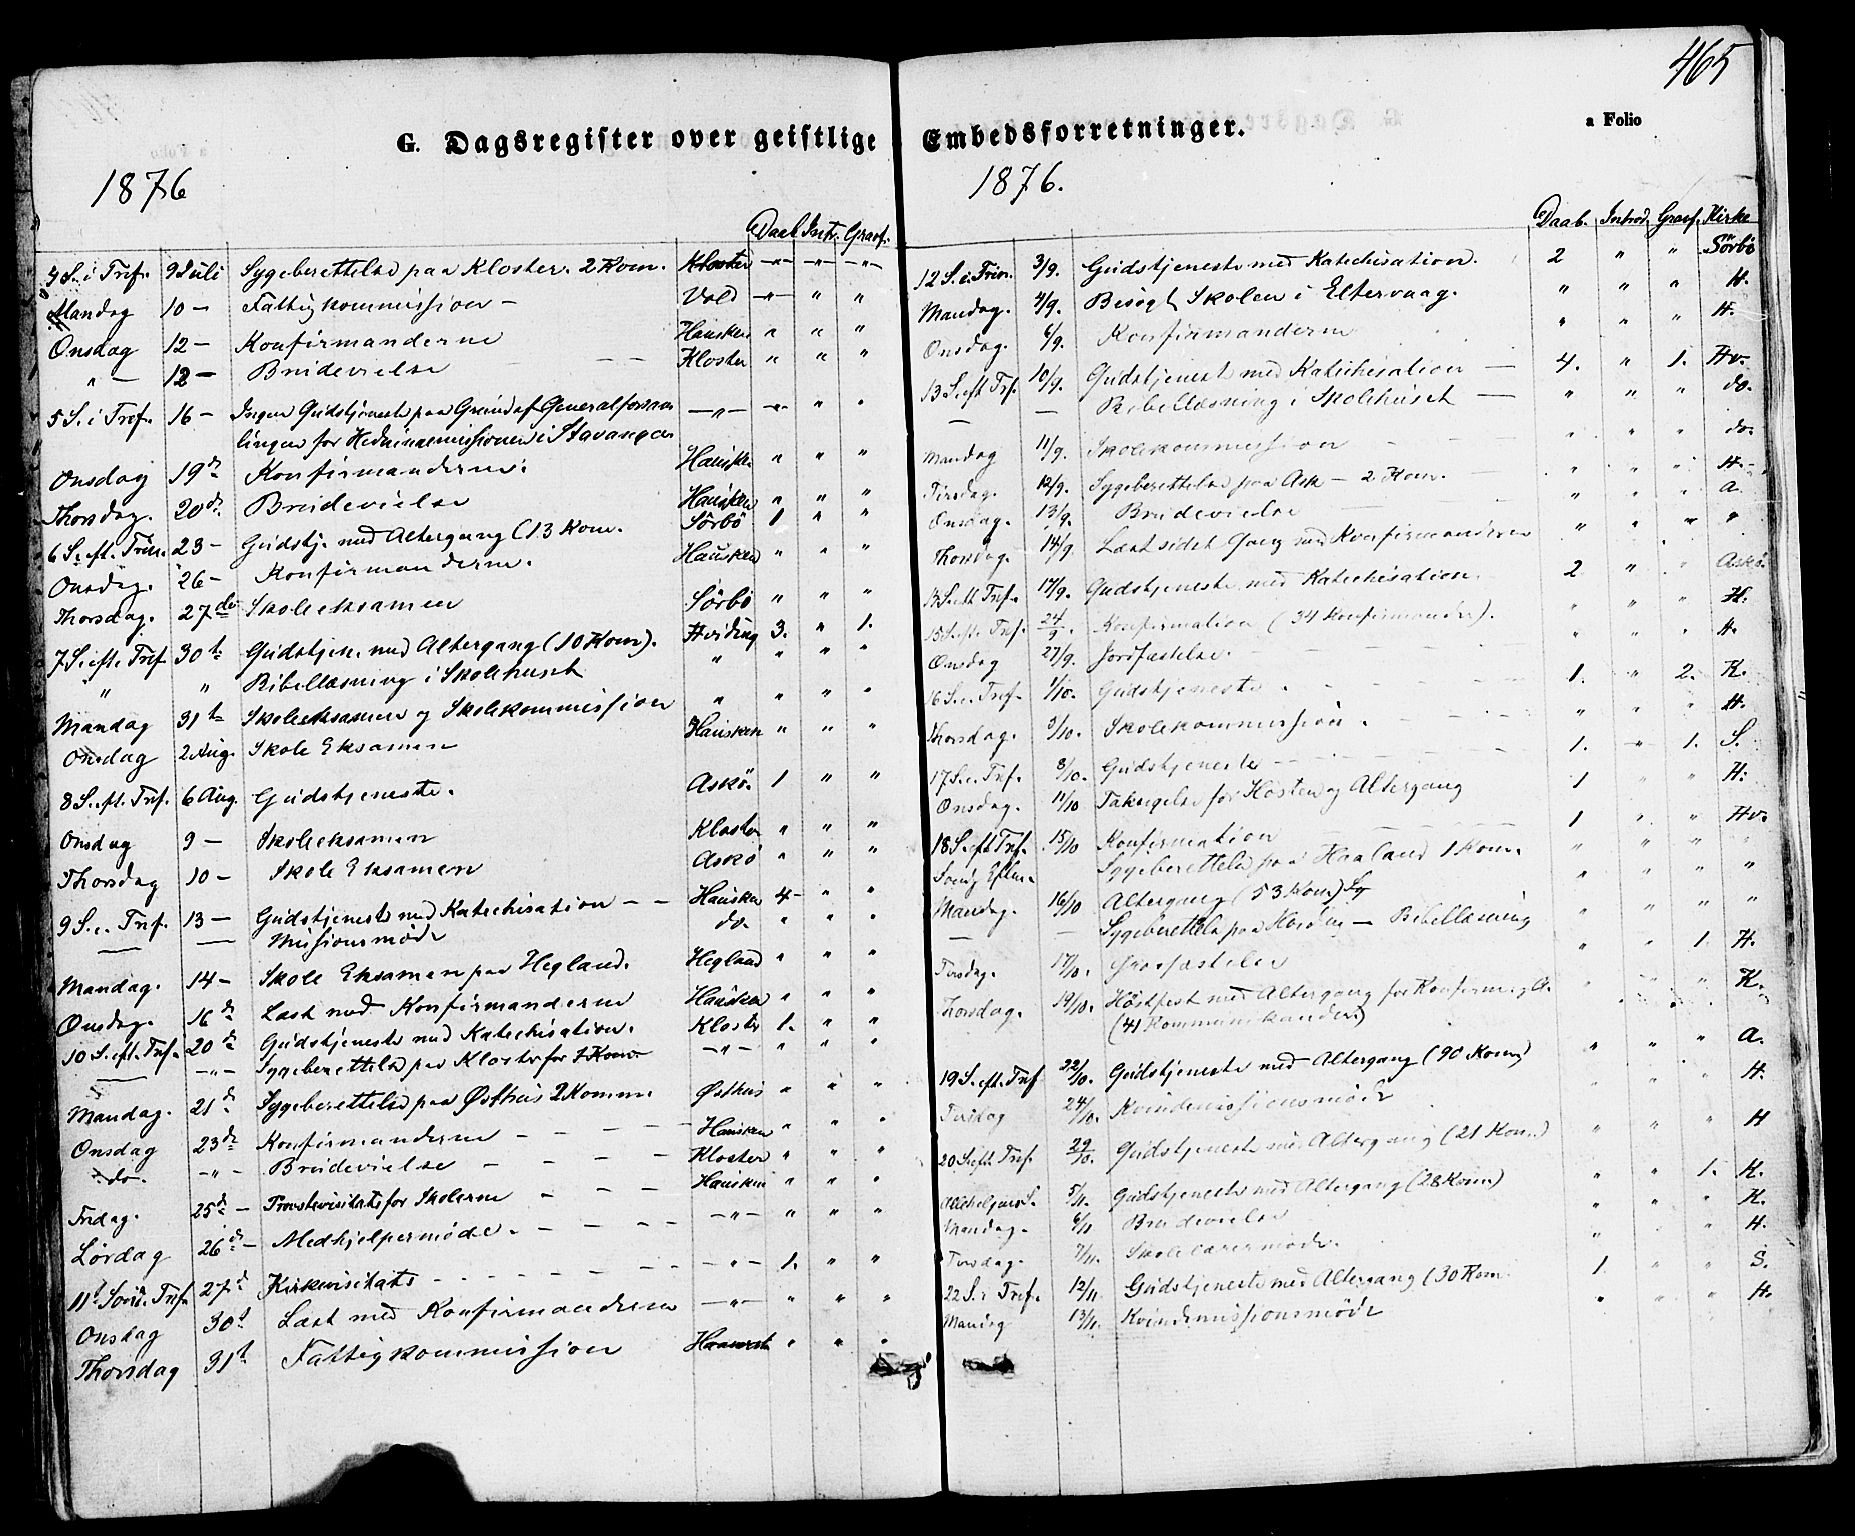 465
G. Dagsregister over geistlige Embedsforretninger.
a Folio
1876
Daab Intr. Gravf.
4 S. i Tref. 9 Juli Sygeberettelse paa Kloster. 2 Kom. Kloster -"- -"- -"-
Mandag 10 - Fattigkommission - Vold -"- " "
Onsdag 12 - Konfirmanderne Hausken " " "
" - 12 - Brudevielse - - Kloster " " "
5 S. i Tref. 16 - Ingen Gudstjeneste paa Grund af Generalforsam -"- -"- " "
lingen for Hedningemissionen i Stavanger
Onsdag 19de Konfirmanderne. Hausken " " "
Thorsdag. 20de Brudevielse Hausken " " "
6 S. eft. Trin. 23 - Gudstj. med Altergang (13 Kom. Sörbö 1 " "
Onsdag. 26 - Konfirmanderne. Hausken " " "
Thorsdag. 27de Skoleeksamen Sörbö " " "
7 S. eft. Tref. 30te Gudstjen. med Altergang (10 Kom). Hviding 3. " 1.
" " Bibellæsning i Skolehuset " " " "
Mandag 31te Skoleeksamen og Skolekommission " " " "
Onsdag 2 Aug. Skole Eksamen Hausken " " "
8 S. eft. Tref. 6 Aug. Gudstjeneste. Askö. 1 " "
Onsdag 9 - Skoleeksamen Kloster " " "
Thorsdag 10 - Skole Eksamen Askö " " "
9 S. e. Tref. 13 - Gudstjeneste med Katechisation - - Hausken 4 - " "
— — Missionsmöde do. " " "
Mandag. 14 - Skole Eksamen paa Hegland. Hegland " " "
Onsdag. 16de Læst med Konfirmanderne Hausken " " "
10 S. eft. Tref. 20de Gudstjeneste med Katechisation. Kloster 1. " "
— -"- Sygeberettelse paa Kloster for 1 Kom. -"- " " "
Mandag. 21de Sygeberettelse paa Østhus 2 Komm. Østhus " " "
Onsdag 23de Konfirmanderne - - - - Hausken " " "
do. -"- Brudevielse - - - - Kloster " " "
Fredag. 25de - Provstevisitats for Skolerne - - - Hausken " " "
Lørdag 26de - Medhjelpermøde. - - - - -"- " " "
11t Sönd. Tref. 27de Kirkevisitats - - - - - - -"- 1. " "
Onsdag 30t Læst med Konfirmanderne -"- " " "
Thorsdag 31t Fattigkommission " " "
1876.
Daab. Introd. Gravf. Kirke
12 S. i Trin. 3/9. Gudstjeneste med Katechisation. 2 " " Sörbö
Mandag. 4/9. Besøgt Skolen i Eltervaag. " " " H.
Onsdag. 6/9. Konfirmanderne " " " H.
13 S. eft Tref. 10/9. Gudstjeneste med Katechisation - 4. " 1. Hv.
— Bibellæsning i Skolehuset - " " " do.
Mandag 11/9. Skolekommission - - " " " do.
Tirsdag. 12/9. Sygeberettelse paa Ask - 2 Kom. - " " " H. -
Onsdag. 13/9. Brudevielse - " " " A.
Thorsdag. 14/9. Læst sidst Gang med Konfirmanderne " " " "
Gudstjeneste med Katechisation. 2 " " Askö.
15 S. eft. Tref. 24/9. Konfirmation (34 Konfirmander). " " " H.
Onsdag 27/9. Jordfæstelse. - - - " " " H.
16 S. e. Tref. 1/10. Gudstjeneste. - - - - 1. " 2. K.
Thorsdag. 5/10. Skolekommission. - - - " " " H.
17 S. e. Tref. 8/10. Gudstjeneste - - - - 1. " 1. S.
Onsdag. 11/10 Taksigelse for Høsten og Altergang 1 " " H.
18 S. eft Tref. 15/10 Konfirmation - - - - 1 " " Hv.
Sønd. Eftm. Sygeberettelse paa Haaland 1 Kom. " " " "
Mandag. 16/10 Altergang (53 Kom) " " " "
— — Sygeberettelse paa — Bibellæsning " " " "
Tirsdag. 17/10. Jordfæstelse " " 1. H.
Thorsdag. 19/10. Höstfest med Altergang for Konfirm. " " " K.
(41 Kommunikander)
19 S. eft. Tref 22/10. Gudstjeneste med Altergang (90 Kom) " " " A.
Tirsdag 24/10. Kvindemissionsmöde " " " H.
20 S. eft. Tref. 29/10. Gudstjeneste med Altergang (21 Kom.) " " " H
Allehelgens S. 5/11. Gudstjeneste med Altergang (28 Kom) " " 1. K.
Mandag. 6/11 Brudevielse " " " K.
Tirsdag. 7/11. Skolelærermøde. " " " H.
22 S. e Tref. 12/11. Gudstjeneste med Altergang (30 Kom. 1. " " S.
Mandag 13/11. Kvindemissionsmöde " " " H.